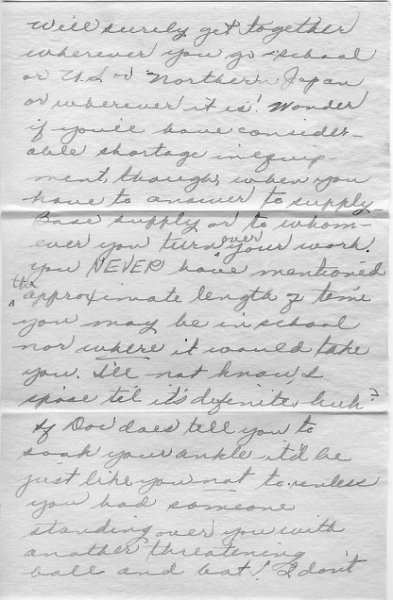 Will surely get together
wherever you go - school
or U.S. or Northern Japan
or wherever it is! Wonder
if you'll have consider-
able shortage in equip-
ment, though, when you
have to answer to supply
Base supply or to whom-
ever you turn over your work!
You NEVER have mentioned
the approximate length of time
you may be in school
nor where it would take
you. I'll not know, I
spose til it's definite, huh?
If Doc does tell you to
soak your ankle it'd be
just like you not to unless
you had someone
standing over you with
another threatening
ball and bat! I don't